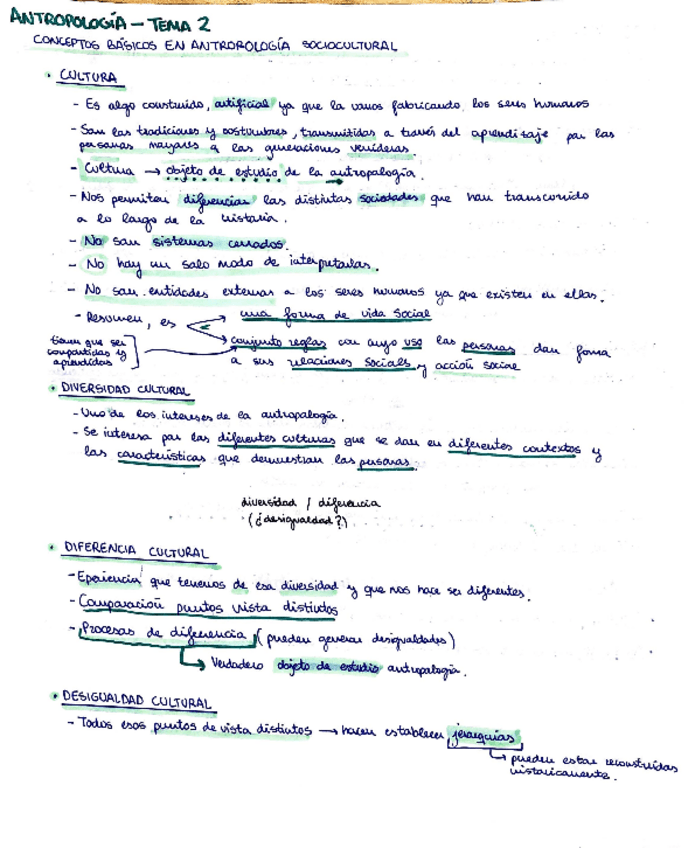 ANTROPOLOGÍA - TEMA 2
CONCEPTOS BÁSICOS EN ANTROPOLOGÍA SOCIOCULTURAL
• CULTURA
- Es algo construido, artificial ya que la vamos fabricando los seres humanos
- Son las tradiciones y costumbres, transmitidas a través del aprendizaje por las
personas mayores a las generaciones venideras.
- Cultura → objeto de estudio de la antropología.
- Nos permiten diferenciar las distintas sociedades que han transcurrido
a lo largo de la historia.
- No son sistemas cerrados.
- No hay un solo modo de interpretarlas.
- No son entidades externas a los seres humanos ya que existen en ellos.
- Resumen, es
una forma de vida social
conjunto reglas con cuyo uso las personas dan forma
a sus relaciones sociales y acción social
tienen que ser
compartidas y
aprendidas
• DIVERSIDAD CULTURAL
- Uno de los intereses de la antropología.
- Se interesa por las diferentes culturas que se dan en diferentes contextos y
las características que demuestran las personas.
diversidad / diferencia
(¿desigualdad?)
• DIFERENCIA CULTURAL
- que tenemos de esa diversidad y que nos hace ser diferentes.
- Comparación puntos vista distintos
- Procesos de diferencia (pueden generar desigualdades)
↳ Verdadero objeto de estudio antropología.
• DESIGUALDAD CULTURAL
- Todos esos puntos de vista distintos → hacen establecer jerarquías
↳ pueden estar reconstruidas
históricamente.